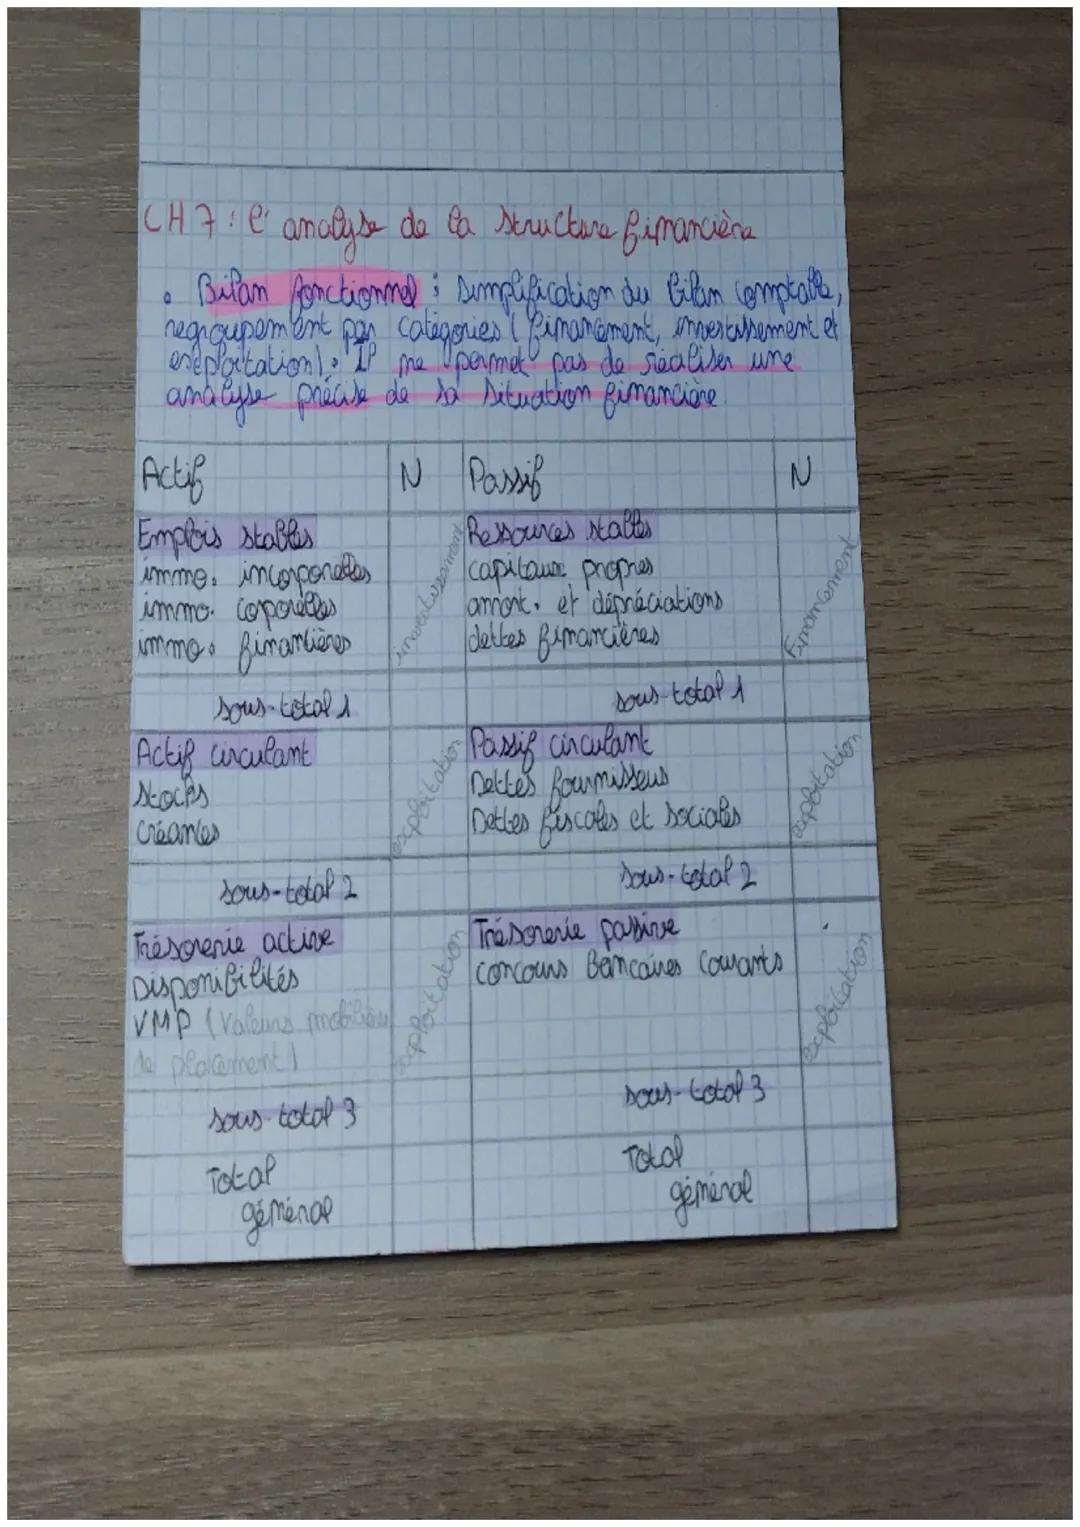 CH 7 : l'analyse de la structure financière
• Bilan fonctionnel : simplification du bilan comptable,
regroupement par catégories (financement, investissement et
exploitation). Il ne permet pas de réaliser une
analyse précise de sa situation financière.
Actif N Passif N
Emplois stables
immo. incorporelles
immo. corporelles
immo. financières
investissement
Ressources stables
capitaux propres
amort. et dépréciations
dettes financières
Financement
sous-total 1
sous-total 1
Actif circulant
Stocks
Créances
exploitation
Passif circulant
Dettes fournisseurs
Dettes fiscales et sociales
exploitation
sous-total 2
sous-total 2
Trésorerie active
Disponibilités
VMP (Valeurs mobilières
de placement)
exploitation
Trésorerie passive
concours Bancaires courants
exploitation
sous-total 3
sous-total 3
Total
général
Total
général